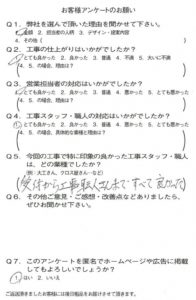 お客様アンケートのお願い
Q1. 弊社を選んで頂いた理由を聞かせて下さい。
1. 金額 2. 担当者の人柄 3. デザイン・提案内容
4. その他(
Q2. 工事の仕上がりはいかがでしたか?
1. とても良かった 2. 良かった 3. 普通 4. 不満 5. 大いに不満
4. 5. の場合、理由は?
Q3. 営業担当者の対応はいかがでしたか?
1. とても良かった 2. 良かった 3. 普通 4. 悪かった 5. とても悪かった
4. 5. の場合、理由は?
Q4. 工事スタッフ・職人の対応はいかがでしたか?
1. とても良かった 2. 良かった 3. 普通 4. 悪かった 5. とても悪かった
4. 5. の場合、具体的な業種と理由は?
Q5. 今回の工事で特に印象の良かった工事スタッフ・職人
は、どの業種でしたか?
例:大工さん、クロス屋さん…など
すべて良かった
Q6. その他ご意見・ご感想・改善点などありましたら、
ぜひお聞かせ下さい。
Q7. このアンケートを匿名でホームページや広告に掲載
してもよろしいでしょうか?
1. はい 2. いいえ
ご返送頂きましたお客様には後日粗品をお届けさせて頂きます。